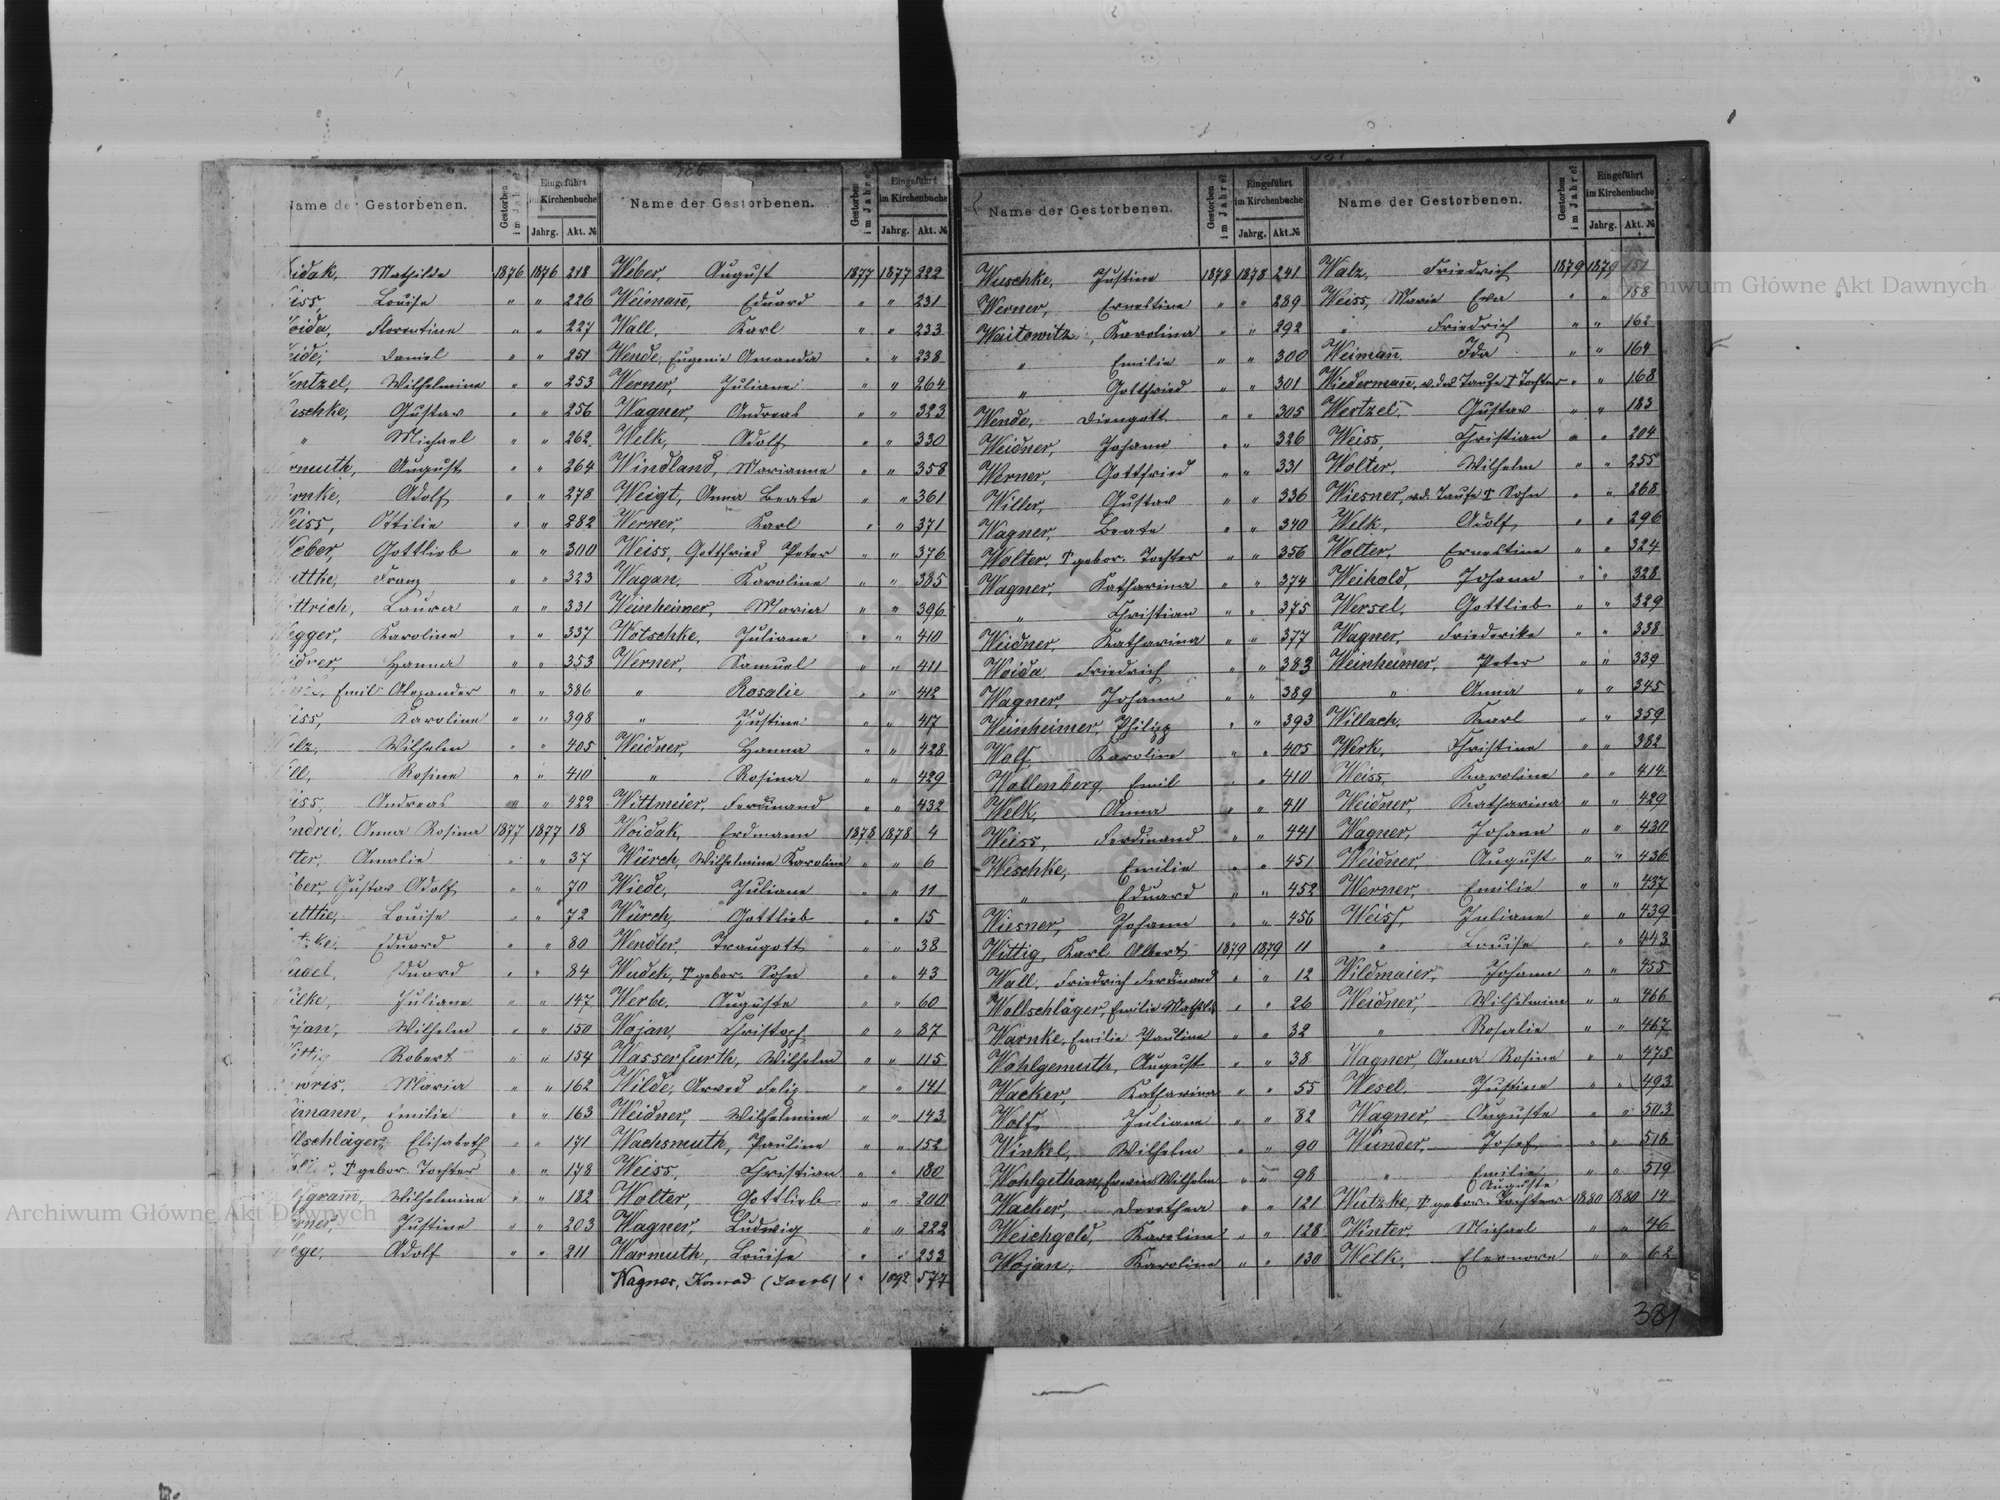 Name der Gestorbenen. Gestorben im Jahre Eingeführt im Kirchenbuche Jahrg. Akt. №
idak, Mathilde 1876 1876 218
iss, Louise " " 226
oida, Florentine " " 227
eide, Daniel " " 251
entzel, Wilhelmine " " 253
eschke, Gustav " " 256
" Michael " " 262
rmuth, August " " 264
rnke, Adolf " " 278
Weiss, Ottilie " " 282
Weber, Gottlieb " " 300
uttke, Franz " " 323
ttrich, Laura " " 331
Wegger, Karoline " " 337
idner, Hanna " " 353
Emil Alexander " " 386
iss, Karoline " " 398
alz, Wilhelm " " 405
ill, Rosine " " 410
iss, Andreas " " 422
endrei, Anna Rosina 1877 1877 18
ter, Amalie " " 37
ber, Gustav Adolf " " 70
uttke, Louise " " 72
Eduard " " 80
udel, Eduard " " 84
ilke, Juliane " " 147
ojan, Wilhelm " " 150
Wittig Robert " " 154
woris, Maria " " 162
imann, Emilie " " 163
llschläger, Elisabeth " " 171
† gebor. Tochter " " 178
gram̄, Wilhelmine " " 182
erner, Justine " " 203
iege, Adolf " " 211
Name der Gestorbenen. Gestorben im Jahre Eingeführt im Kirchenbuche Jahrg. Akt. №
Weber, August 1877 1877 222
Weiman̄, Eduard " " 231
Wall, Karl " " 233
Wende, Eugenie Amanda " " 238
Werner, Juliane " " 264
Wagner, Andreas " " 323
Welk, Adolf " " 330
Windland, Marianne " " 358
Weigt, Anna Beate " " 361
Werner, Karl " " 371
Weiss, Gottfried Peter " " 376
Wagan, Karoline " " 385
Weinheimer, Maria " " 396
Wotschke, Juliane " " 410
Werner, Samuel " " 411
" Rosalie " " 412
" Justine " " 417
Weidner, Hanna " " 428
" Rosina " " 429
Wittmeier, Ferdinand " " 432
Woidak, Erdmann 1878 1878 4
Würch, Wilhelmine Karoline " " 6
Wiede, Juliane " " 11
Würch, Gottlieb " " 15
Wendler, Traugott " " 38
Wudek, † gebor. Sohn " " 43
Werbe, Auguste " " 60
Wojan, Christoph " " 87
Wasserfurth, Wilhelm " " 115
Wilde, Arved Felix " " 141
Weidner, Wilhelmine " " 143
Wachsmuth, Pauline " " 152
Weiss, Christian " " 180
Wolter, Gottlieb " " 200
Wagner, Ludwig " " 222
Warmuth, Louise " " 233
Wagner, Konrad (Jacob) " 1892 577
Name der Gestorbenen. Gestorben im Jahre Eingeführt im Kirchenbuche Jahrg. Akt. №
Weschke, Justine 1878 1878 241
Werner, Ernestine " " 289
Waitowitz, Karolina " " 292
" Emilie " " 300
" Gottfried " " 301
Wende, Diengott " " 305
Weidner, Johann " " 326
Werner, Gottfried " " 331
Willer, Gustav " " 336
Wagner, Beate " " 340
Wolter, † gebor. Tochter " " 356
Wagner, Katharina " " 374
" Christian " " 375
Weidner, Katharina " " 377
Woida Friedrich " " 383
Wagner, Johann " " 389
Weinheimer, Philipp " " 393
Wolf, Karoline " " 405
Wollenberg, Emil " " 410
Welk, Anna " " 411
Weiss, Ferdinand " " 441
Weschke, Emilie " " 451
" Eduard " " 452
Wiesner, Johann " " 456
Wittig, Karl Albert 1879 1879 11
Wall, Friedrich Ferdinand " " 12
Wollschläger, Emilie Mathilde " " 26
Warnke, Emilie Pauline " " 32
Wohlgemuth, August " " 38
Wacker, Katharina " " 55
Wolf, Juliane " " 82
Winkel, Wilhelm " " 90
Wohlgethan, Erwin Wilhelm " " 98
Wacker, Dorothea " " 121
Weichgold, Karoline " " 128
Wojan, Karoline " " 130
Name der Gestorbenen. Gestorben im Jahre Eingeführt im Kirchenbuche Jahrg. Akt. №
Walz, Friedrich 1879 1879 151
Weiss, Marie Eva " " 158
" Friedrich " " 162
Weiman̄ Ida " " 164
Wiederman̄, v. der Taufe † Tochter " " 168
Wertzel, Gustav " " 183
Weiss, Christian " " 204
Wolter, Wilhelm " " 255
Wiesner, v. d. Taufe † Sohn " " 268
Welk, Adolf " " 296
Wolter, Ernestine " " 324
Weihold Johann " " 328
Wersel, Gottlieb " " 329
Wagner, Friederike " " 338
Weinheimer, Peter " " 339
" Anna " " 345
Willach, Karl " " 359
Werk, Christine " " 382
Weiss, Karoline " " 414
Weidner, Katharina " " 429
Wagner, Johann " " 430
Weidner, August " " 436
Werner, Emilie " " 437
Weiss, Juliane " " 439
" Louise " " 443
Wildmaier, Johann " " 455
Weidner, Wilhelmine " " 466
" Rosalie " " 467
Wagner, Anna Rosine " " 475
Wesel, Justine " " 493
Wagner, Auguste " " 503
Wunder, Josef " " 518
" Emilie Auguste " " 519
Wutzke, † gebor. Tochter 1880 1880 14
Winter, Michael " " 46
Welk, Eleonore " " 62
381
Archiwum Główne Akt Dawnych
Archiwum Główne Akt Dawnych